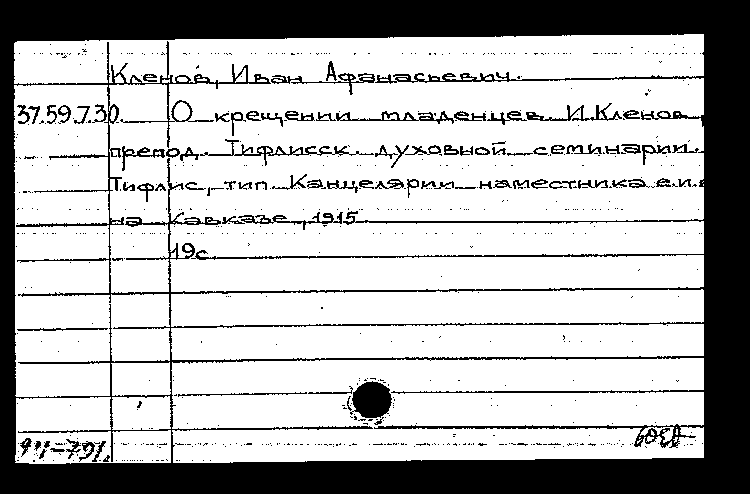 Кленов, Иван Афанасьевич.
37.59.7.30. О крещении младенцев. И.Кленов,
препод. Тифлисск. духовной семинарии.
Тифлис, тип. Канцелярии наместника е.и.в
на Кавказе, 1915.
19с.